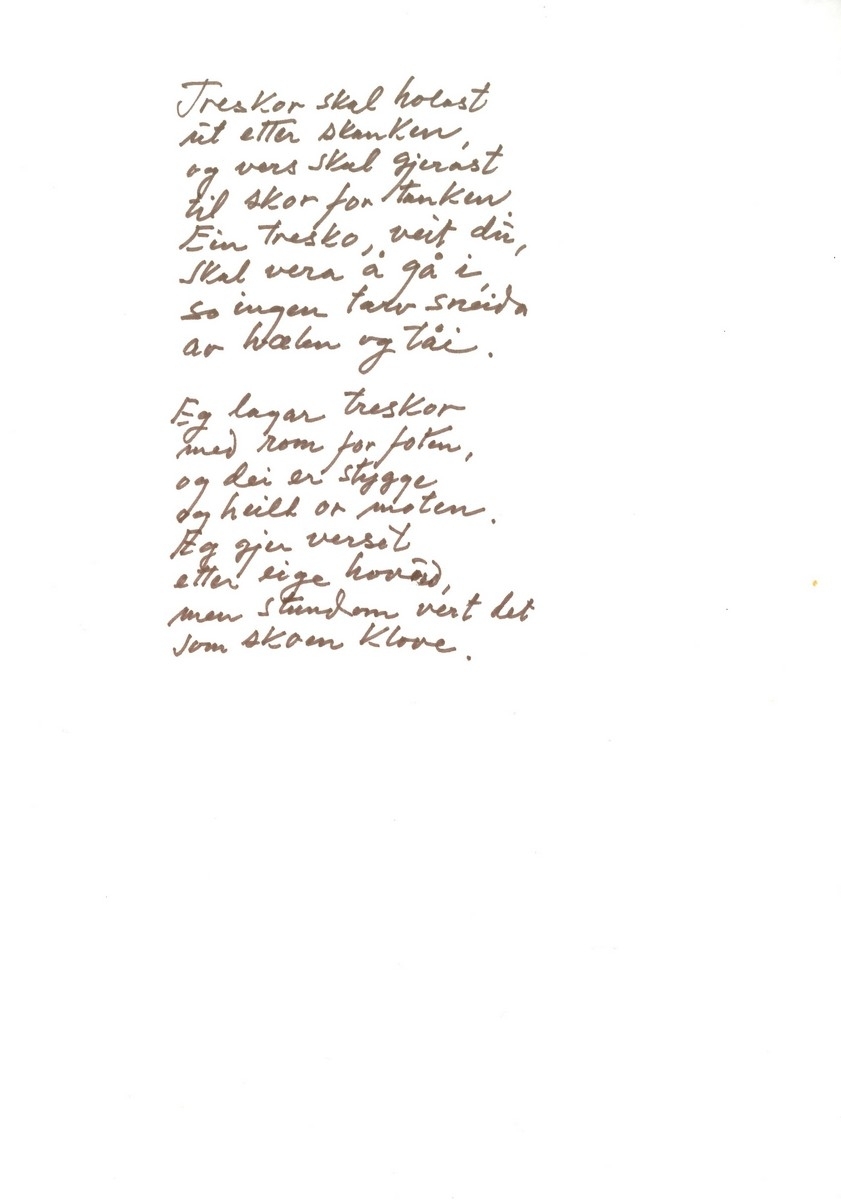 Treskor skal holast
ut etter skanken,
og vers skal gjerast
til skor for tanken.
Ein tresko, veit du,
skal vera å gå i,
so ingen tarv sneida
av hælen og tåi.

Eg lagar treskor
med rom for foten,
og dei er stygge
og heilt or moten.
Eg gjer verset
etter eige hovud,
men stundom vert det
som skoen klove.